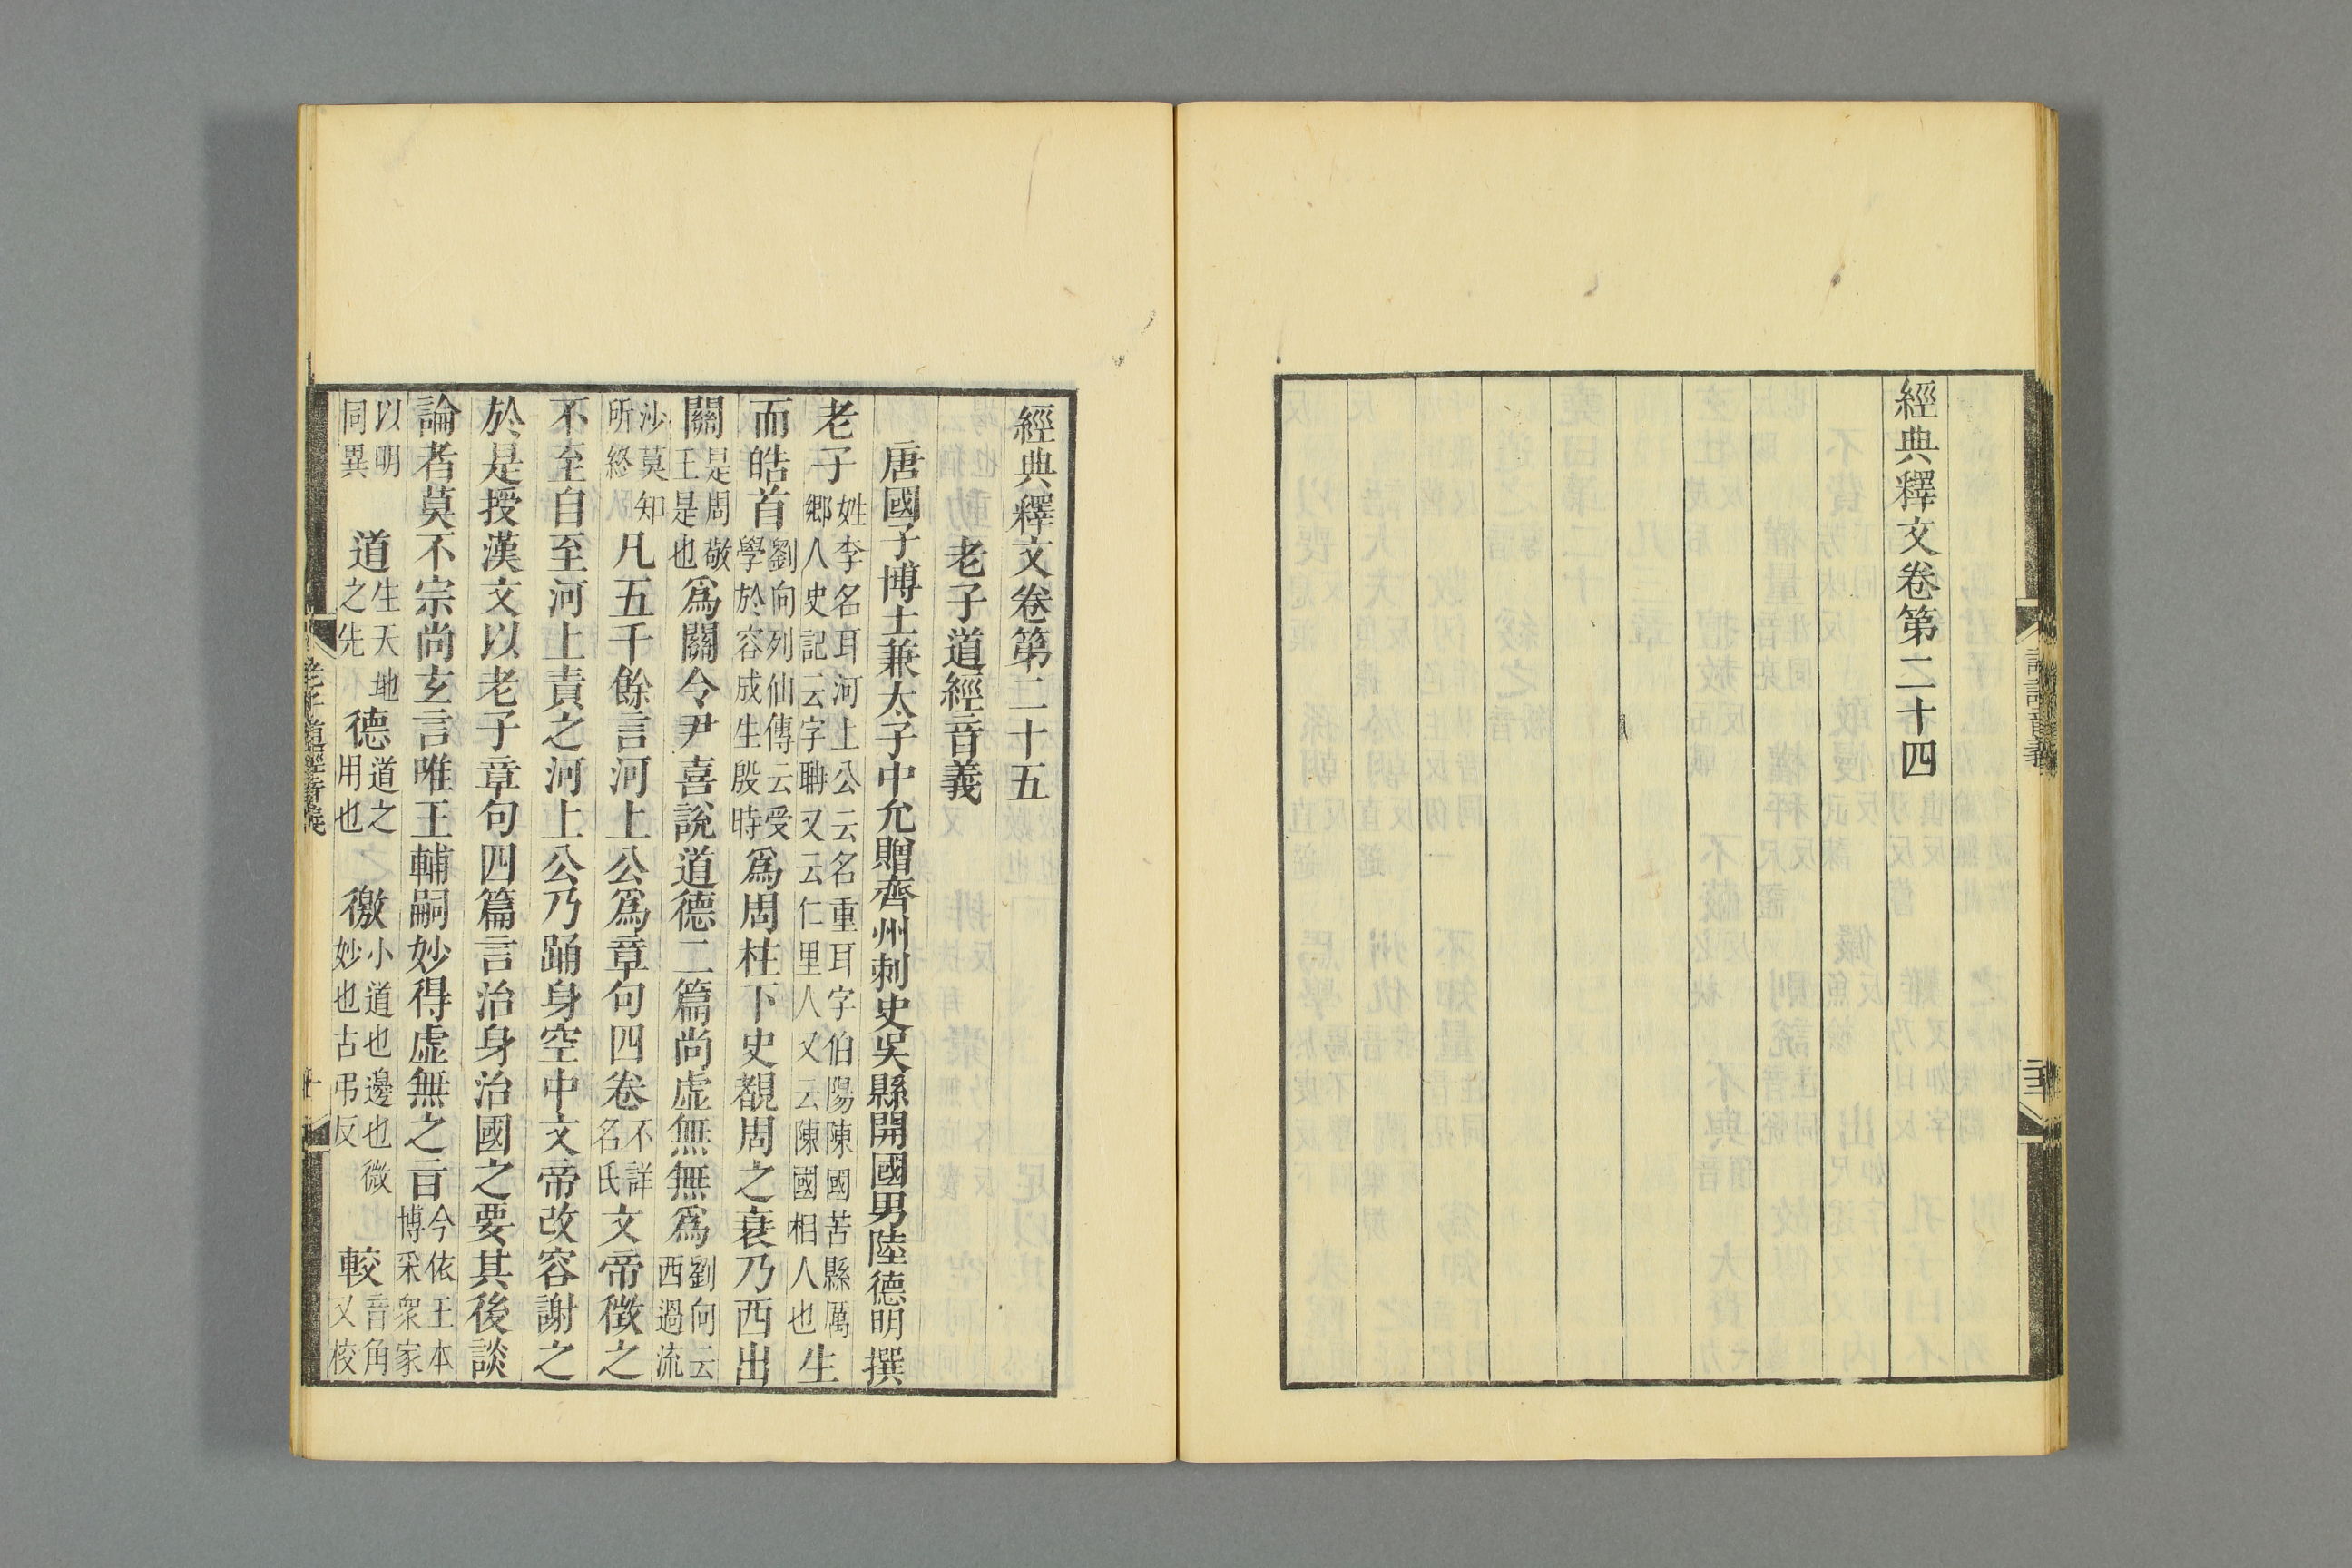 經典釋文卷第二十四
經典釋文卷第二十五
老子道經音義
唐國子博士兼太子中允贈齊州刺史吳縣開國男陸德明撰
老子姓李名耳河上公云名重耳字伯陽陳國苦縣厲鄉人史記云字聃又云仁里人又云陳國相人也生
而皓首劉向列仙傳云受學於容成生殷時爲周柱下史覩周之衰乃西出
關是周敬王是也爲關令尹喜說道德二篇尚虛無無爲劉向云西過流
沙莫知所終凡五千餘言河上公爲章句四卷不詳名氏文帝徵之
不至自至河上責之河上公乃踊身空中文帝改容謝之
於是授漢文以老子章句四篇言治身治國之要其後談
論者莫不宗尚玄言唯王輔嗣妙得虛無之旨今依王本博采衆家
以明同異道生天地之先德道之用也徼小道也邊也微妙也古弔反較音角又校
老子道經音義